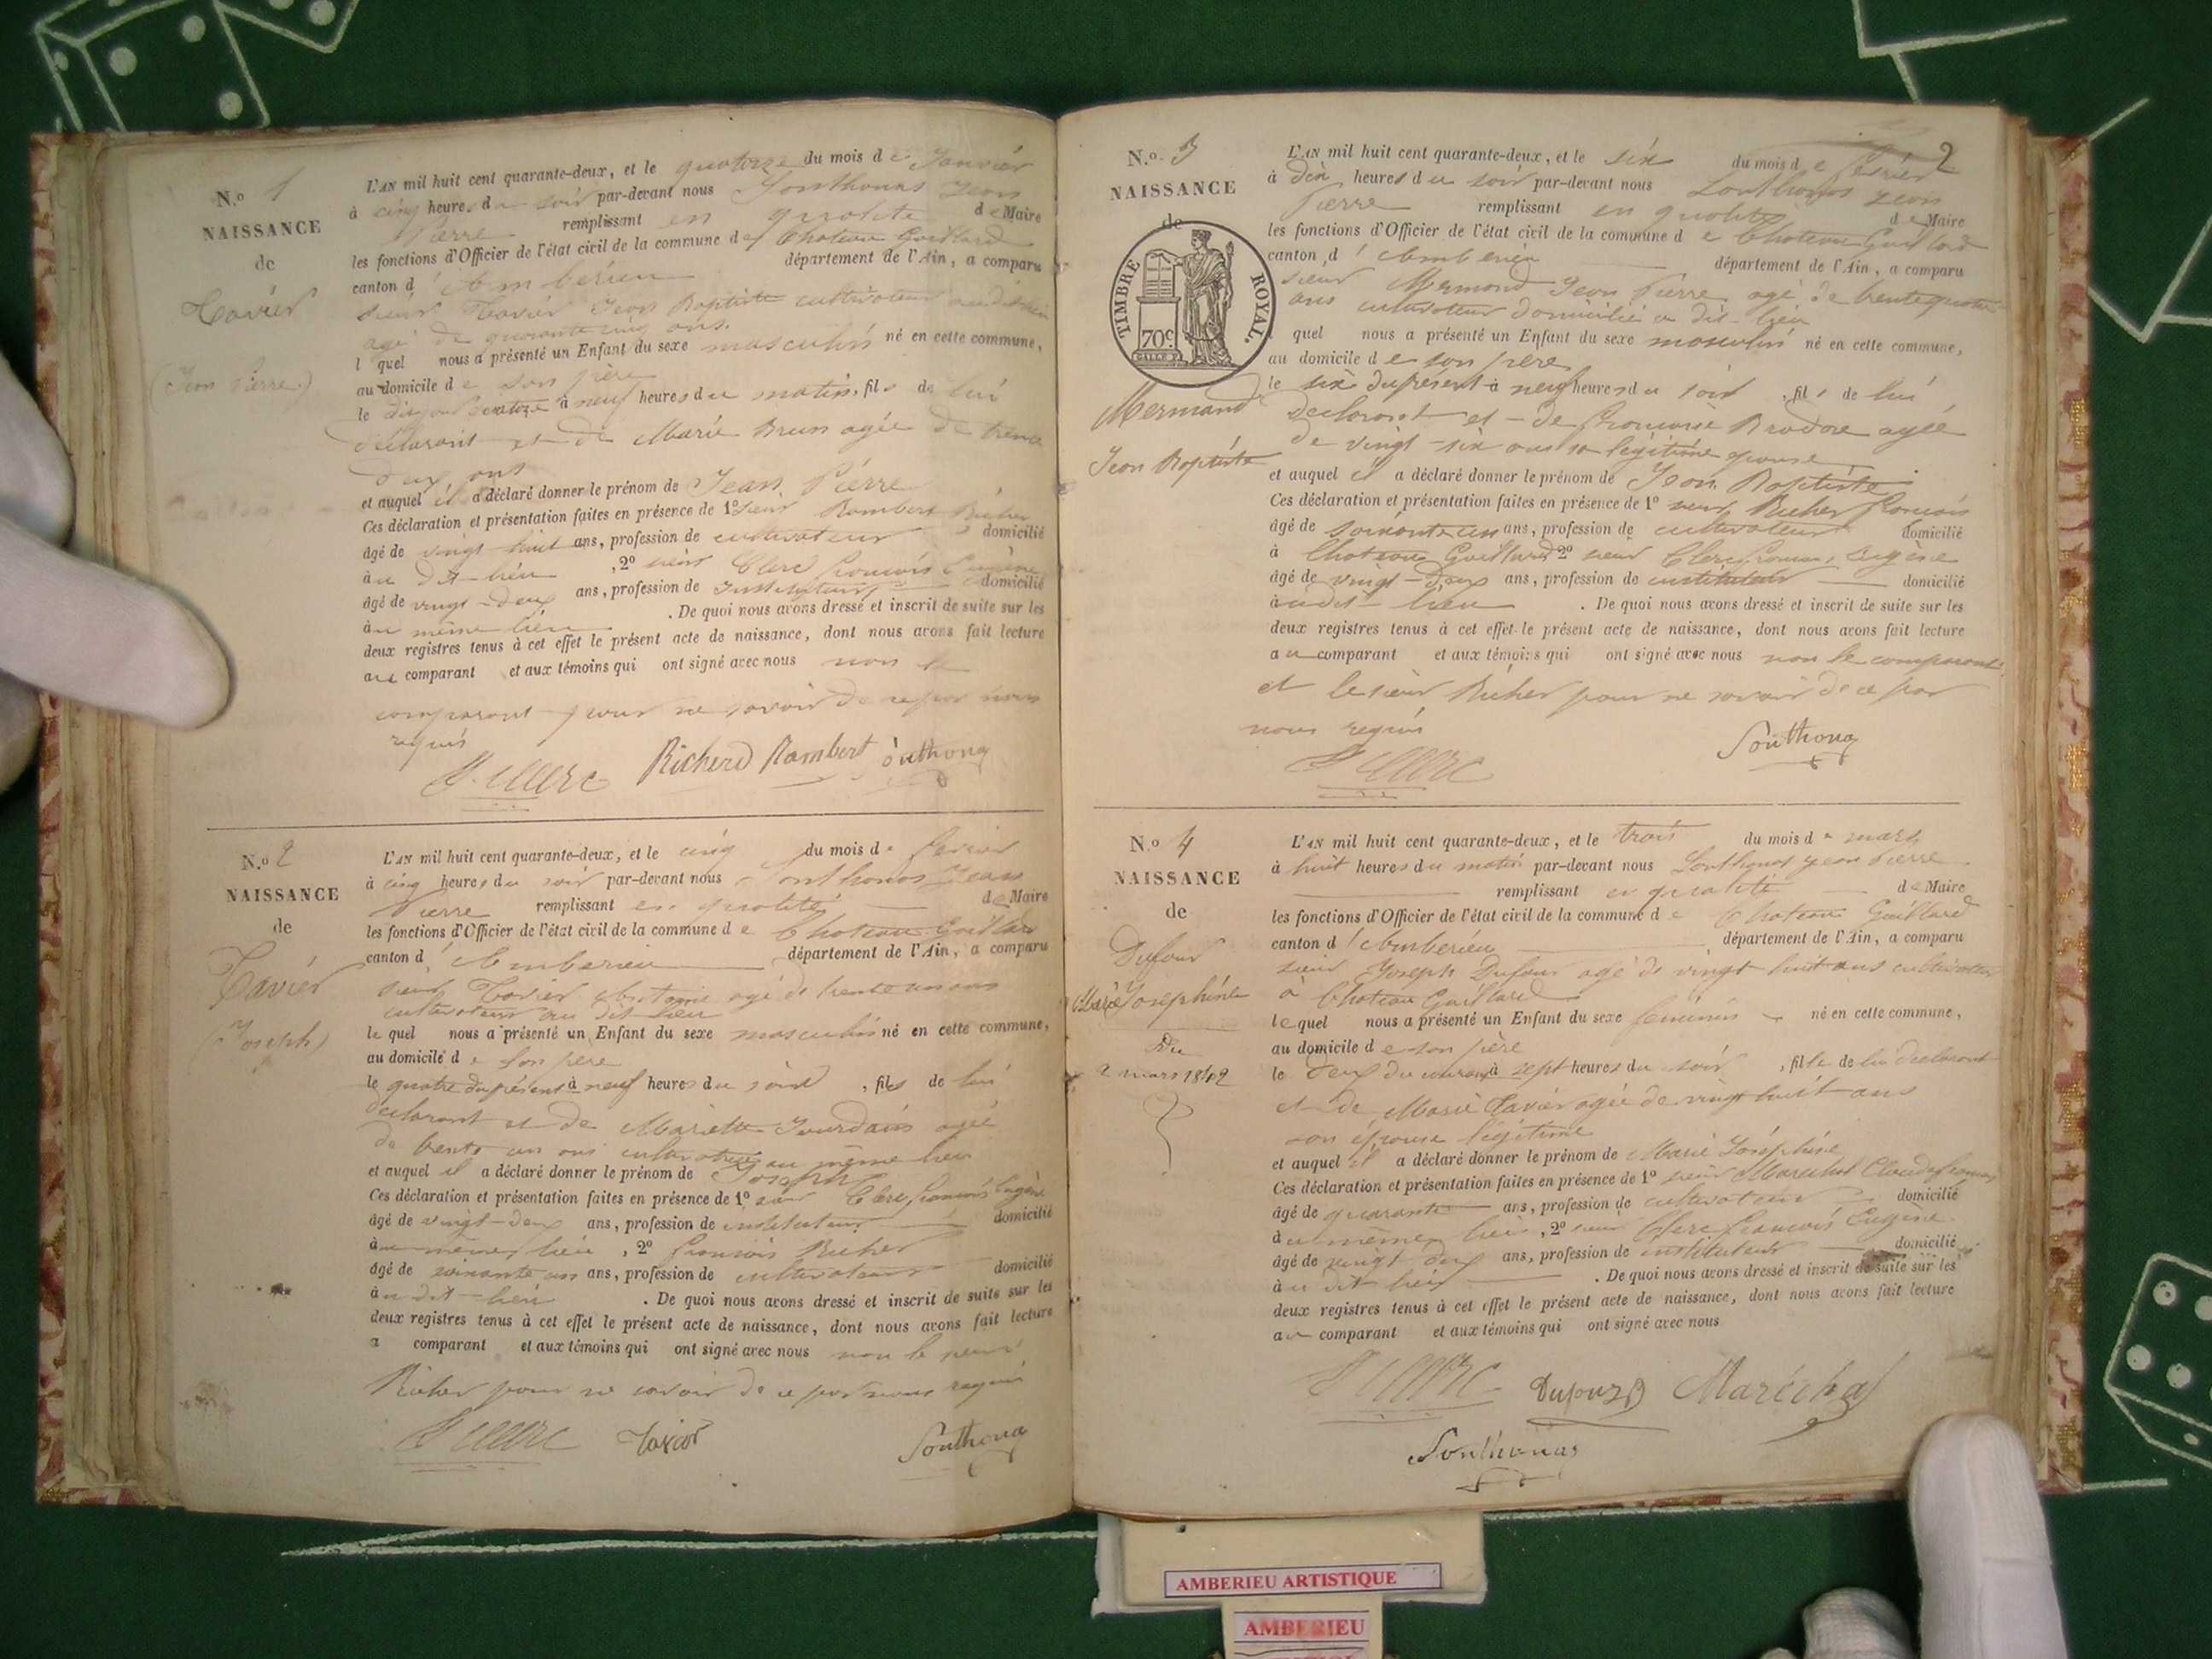 N.o 1
NAISSANCE
de
Tavier
(Jean Pierre)
L'AN mil huit cent quarante-deux, et le quatorze du mois de Janvier
à cinq heures du soir par-devant nous Sonthonas Jean
Pierre remplissant en qualité de Maire
les fonctions d'Officier de l'état civil de la commune de Chateau Gaillard
canton d'Amberieu département de l'Ain, a comparu
sieur Tavier Jean Baptiste cultivateur
agé de quarante cinq ans.
l quel nous a présenté un Enfant du sexe masculin né en cette commune,
au domicile de son père
le dit jour quatorze à neuf heures du matin, fils de lui
déclarant et de Marie Brun agée de trente
deux ans
et auquel il a déclaré donner le prénom de Jean Pierre
Ces déclaration et présentation faites en présence de 1o sieur Rambert
âgé de vingt huit ans, profession de cultivateur domicilié
au dit-lieu, 2o sieur Clerc françois Eugène
âgé de vingt-deux ans, profession de Instituteur domicilié
au même lieu. De quoi nous avons dressé et inscrit de suite sur les
deux registres tenus à cet effet le présent acte de naissance, dont nous avons fait lecture
au comparant et aux témoins qui ont signé avec nous non le
comparant pour ne savoir de ce par nous
requis
Clerc Richerd Rambert Sonthona
N.o 2
NAISSANCE
de
Tavier
(Joseph)
L'AN mil huit cent quarante-deux, et le cinq du mois de fevrier
à cinq heures du soir par-devant nous Sonthonas Jean
Pierre remplissant en qualité de Maire
les fonctions d'Officier de l'état civil de la commune de Chateau Gaillard
canton d'Amberieu département de l'Ain, a comparu
sieur Tavier Antoine agé de trente un ans
cultivateur au dit lieu
le quel nous a présenté un Enfant du sexe masculin né en cette commune,
au domicile de son père
le quatre du présent à neuf heures du soir, fils de lui
declarant et de Mariette Jourdain agée
de trente un ans cultivatrice au même lieu
et auquel il a déclaré donner le prénom de Joseph
Ces déclaration et présentation faites en présence de 1o sieur Clerc françois Eugène
âgé de vingt-deux ans, profession de instituteur domicilié
au même lieu, 2o françois Richer
âgé de soixante un ans, profession de cultivateur domicilié
au dit-lieu. De quoi nous avons dressé et inscrit de suite sur les
deux registres tenus à cet effet le présent acte de naissance, dont nous avons fait lecture
a comparant et aux témoins qui ont signé avec nous non le sieur
Richer pour ne savoir de ce par nous requis
Clerc Tavier Sonthona
2
N.o 3
NAISSANCE
de
TIMBRE ROYAL.
70c
Mermand
Jean Baptiste
L'AN mil huit cent quarante-deux, et le six du mois de février
à dix heures du soir par-devant nous Sonthonas Jean
Pierre remplissant en qualité de Maire
les fonctions d'Officier de l'état civil de la commune de Chateau Gaillard
canton d'Amberieu département de l'Ain, a comparu
sieur Mermand Jean Pierre agé de trente quatre
ans cultivateur domicilié au dit-lieu
quel nous a présenté un Enfant du sexe masculin né en cette commune,
au domicile de son père
le six du présent à neuf heures du soir, fils de lui
declarant et de françoise agée
de vingt-six ans sa légitime épouse
et auquel il a déclaré donner le prénom de Jean Baptiste
Ces déclaration et présentation faites en présence de 1o sieur Richer françois
âgé de soixante un ans, profession de cultivateur domicilié
à Chateau Gaillard 2o sieur Clerc françois Eugène
âgé de vingt-deux ans, profession de instituteur domicilié
au dit-lieu. De quoi nous avons dressé et inscrit de suite sur les
deux registres tenus à cet effet le présent acte de naissance, dont nous avons fait lecture
au comparant et aux témoins qui ont signé avec nous non le comparant
et le sieur Richer pour ne savoir de ce par
nous requis
Clerc Sonthona
N.o 4
NAISSANCE
de
Dufour
Marie Josephine
Du
2 mars 1842
L'AN mil huit cent quarante-deux, et le trois du mois de mars
à huit heures du matin par-devant nous Sonthonas Jean Pierre
remplissant en qualité de Maire
les fonctions d'Officier de l'état civil de la commune de Chateau Gaillard
canton d'Amberieu département de l'Ain, a comparu
sieur Joseph Dufour agé de vingt huit ans cultivateur
à Chateau Gaillard
le quel nous a présenté un Enfant du sexe féminin né en cette commune,
au domicile de son père
le deux du courant à sept heures du soir, fille de lui declarant
et de Marie Tavier agée de vingt huit ans
son épouse légitime
et auquel il a déclaré donner le prénom de Marie Joséphine
Ces déclaration et présentation faites en présence de 1o sieur Marechal Claude françois
âgé de quarante ans, profession de cultivateur domicilié
au même lieu, 2o sieur Clerc françois Eugène
âgé de vingt deux ans, profession de instituteur domicilié
au dit lieu. De quoi nous avons dressé et inscrit de suite sur les
deux registres tenus à cet effet le présent acte de naissance, dont nous avons fait lecture
au comparant et aux témoins qui ont signé avec nous
Clerc Dufour Maréchal
Sonthonas
AMBERIEU ARTISTIQUE
AMBERIEU